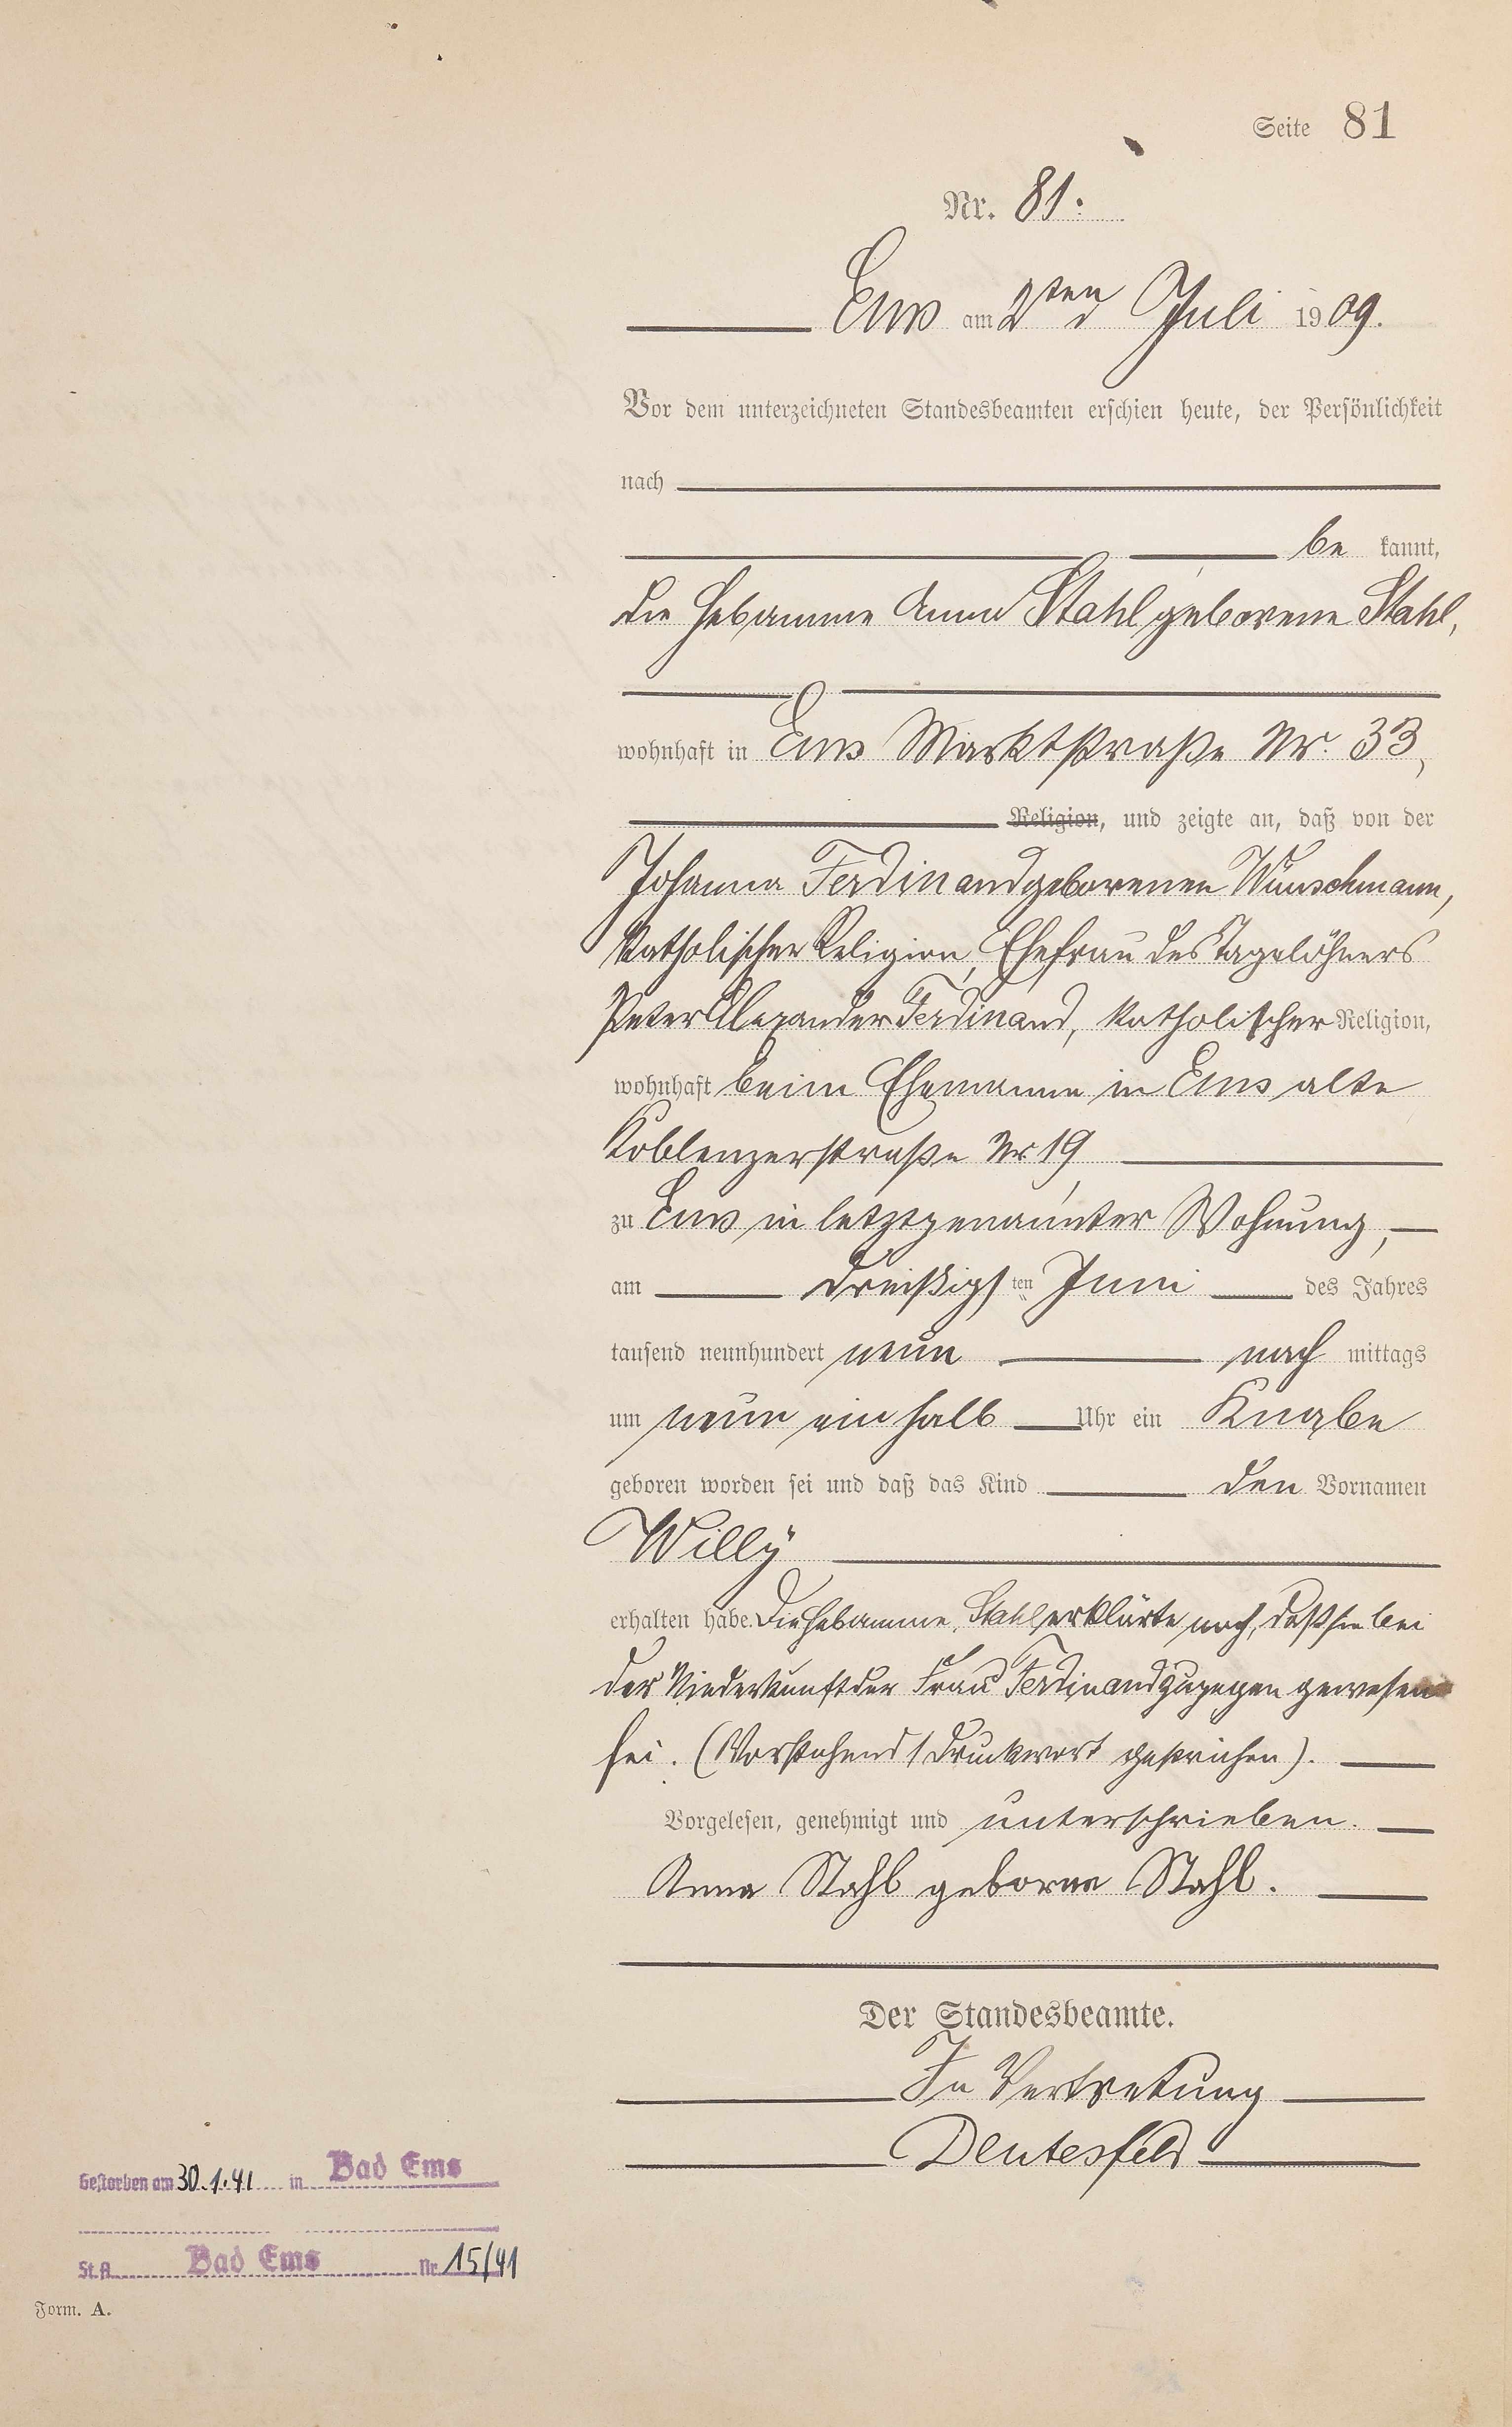 Seite 81
Nr. 81.
Ems am 2ten Juli 1909.
Vor dem unterzeichneten Standesbeamten erschien heute, der Persönlichkeit
nach
be kannt,
die Hebamme Anna Stahl geborene Stahl,
wohnhaft in Ems Marktstraße Nr. 33,
Religion, und zeigte an, daß von der
Johanna Ferdinand geborenen Wunschmann,
katholischer Religion, Ehefrau des Tagelöhners
Peter Alexander Ferdinand, katholischer Religion,
wohnhaft beim Ehemanne in Ems alte
Koblenzerstraße Nr 19,
zu Ems in letztgenannter Wohnung,
am dreißigsten Juni des Jahres
tausend neunhundert neun nach mittags
um neun ein halb Uhr ein Knabe
geboren worden sei und daß das Kind den Vornamen
Willy
erhalten habe. Die Hebamme Stahl erklärte noch, daß sie bei
der Niederkunft der Frau Ferdinand zugegen gewesen
sei. (Vorstehend 1 Druckwort gestrichen).
Vorgelesen, genehmigt und unterschrieben.
Anna Stahl geborne Stahl.
Der Standesbeamte.
In Vertretung
Deutesfeld
Gestorben am 30.1.41 in Bad Ems
St. A. Bad Ems Nr. 15/41
Form. A.